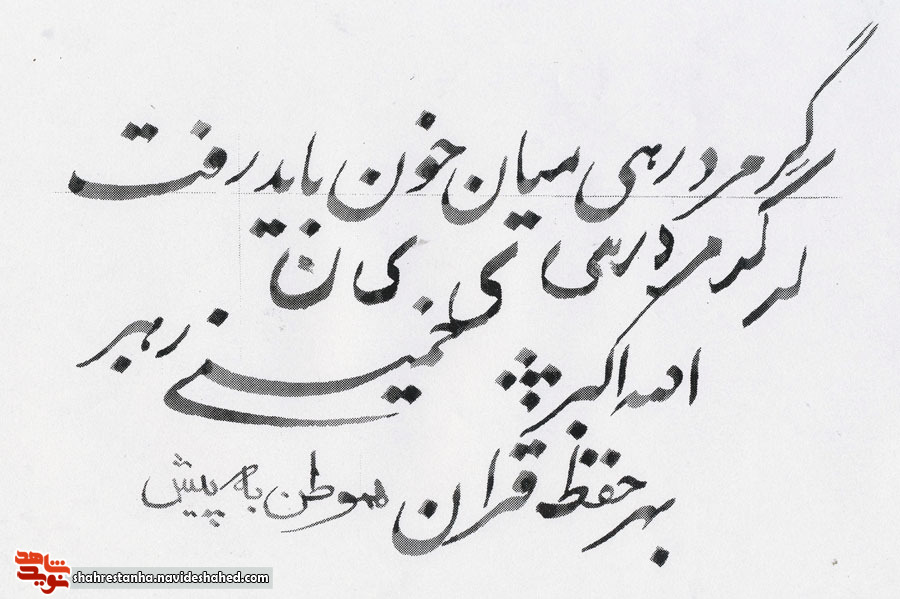 گر مرد رهی میان خون باید رفت
لر گد مرد رهی تی ی ن
الله اکبر خمینی رهبر
بهر حفظ قرآن هموطن به پیش
نوید شاهد
shahrestanha.navideshahed.com